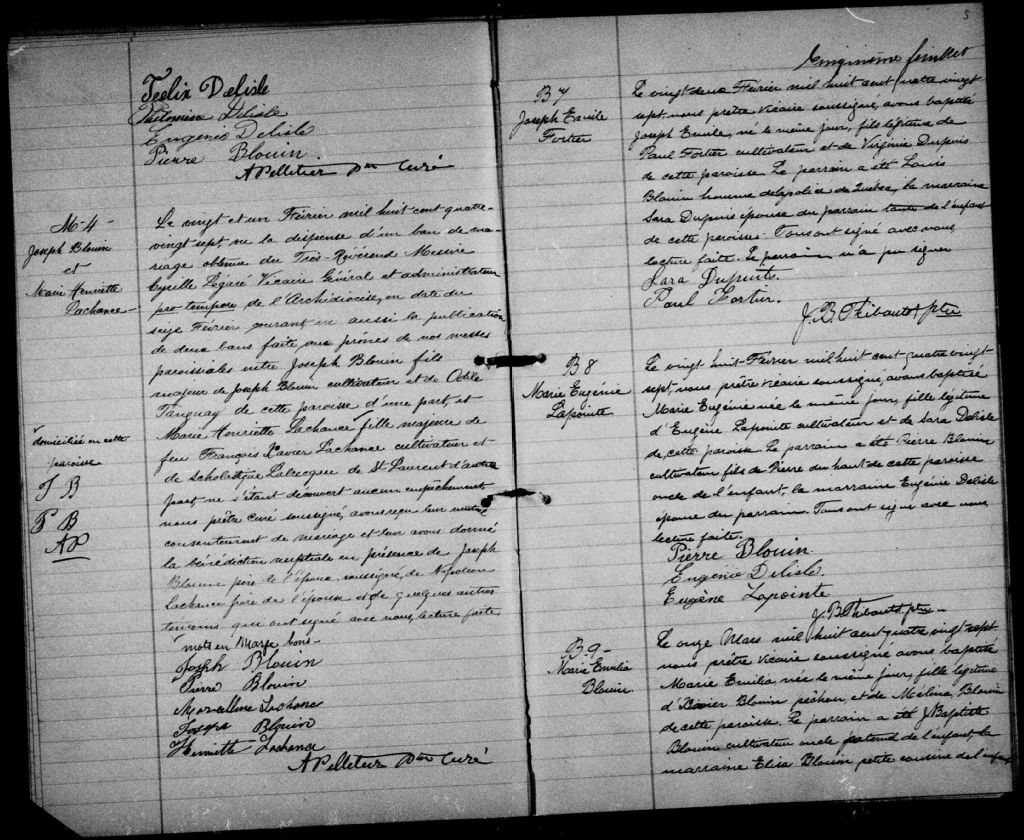 Felix Delisle
Philomène Delisle
Eugenie Delisle
Pierre Blouin.
A Pelletier Ptre Curé
M-4-
Joseph Blouin
et
Marie Henriette
Lachance-
Le vingt et un Février mil huit cent quatre-
vingt sept vu la dispense d'un ban de ma-
riage obtenue du Très-Révérend Messire
Cyrille Légaré Vicaire Général et administrateur
pro-tempore de l'Archidiocèse, en date du
seize Février courant vu aussi la publication
de deux bans faite aux prônes de nos messes
paroissiales entre Joseph Blouin fils
majeur de Joseph Blouin cultivateur et de Odile
Tanguay de cette paroisse d'une part, et
Marie Henriette Lachance fille majeure de
feu François Xavier Lachance cultivateur et
de Scholastique Labrecque de St Laurent d'autre
part, ne s'étant découvert aucun empêchement,
nous prêtre curé soussigné, avons reçu leur mutuel
consentement de mariage et leur avons donné
la bénédiction nuptiale en présence de Joseph
Blouin père de l'époux soussigné, de Napoléon
Lachance frère de l'épouse et de quelques autres
témoins qui ont signé avec nous, lecture faite
domiciliée en cette
paroisse
J B
P B
AP
mots en Marge bons-
Joseph Blouin
Pierre Blouin
Marcelline Lachance
Blouin
Henriette Lachance
A Pelletier Ptre Curé
5
Cinquième feuillet
B 7
Joseph Emile
Fortier
Le vingt deux Février mil huit cent quatre vingt
sept, nous prêtre vicaire soussigné, avons baptisé
Joseph Emile, né le même jour, fils légitime de
Paul Fortier cultivateur et de Virginie Dupuis
de cette paroisse. Le parrain a été Louis
Blouin homme de la police de Québec, la marraine
Sara Dupuis épouse du parrain tante de l'enfant
de cette paroisse. Tous ont signé avec nous,
lecture faite. Le parrain n'a pu signer
Sara Dupuis.
Paul Fortier.
J. B. Thibault ptre
B 8
Marie Eugénie
Lapointe
Le vingt huit Février mil huit cent quatre vingt-
sept, nous prêtre vicaire soussigné, avons baptisé
Marie Eugénie née le même jour, fille légitime
d'Eugène Lapointe cultivateur et de Sara Delisle
de cette paroisse. Le parrain a été Pierre Blouin
cultivateur fils de Pierre du haut de cette paroisse
oncle de l'enfant, la marraine Eugénie Delisle
épouse du parrain. Tous ont signé avec nous,
lecture faite.
Pierre Blouin.
Eugenie Delisle.
Eugène Lapointe
J. B. Thibault ptre-
B. 9-
Marie Emilia
Blouin.
Le onze Mars mil huit cent quatre vingt sept
nous prêtre vicaire soussigné avons baptisé
Marie Emilia, née le même jour, fille légitime
d'Xavier Blouin pêcheur et de Mélina Blouin
de cette paroisse. Le parrain a été J Baptiste
Blouin cultivateur oncle paternel de l'enfant, la
marraine Elisa Blouin petite cousine de l'enfant